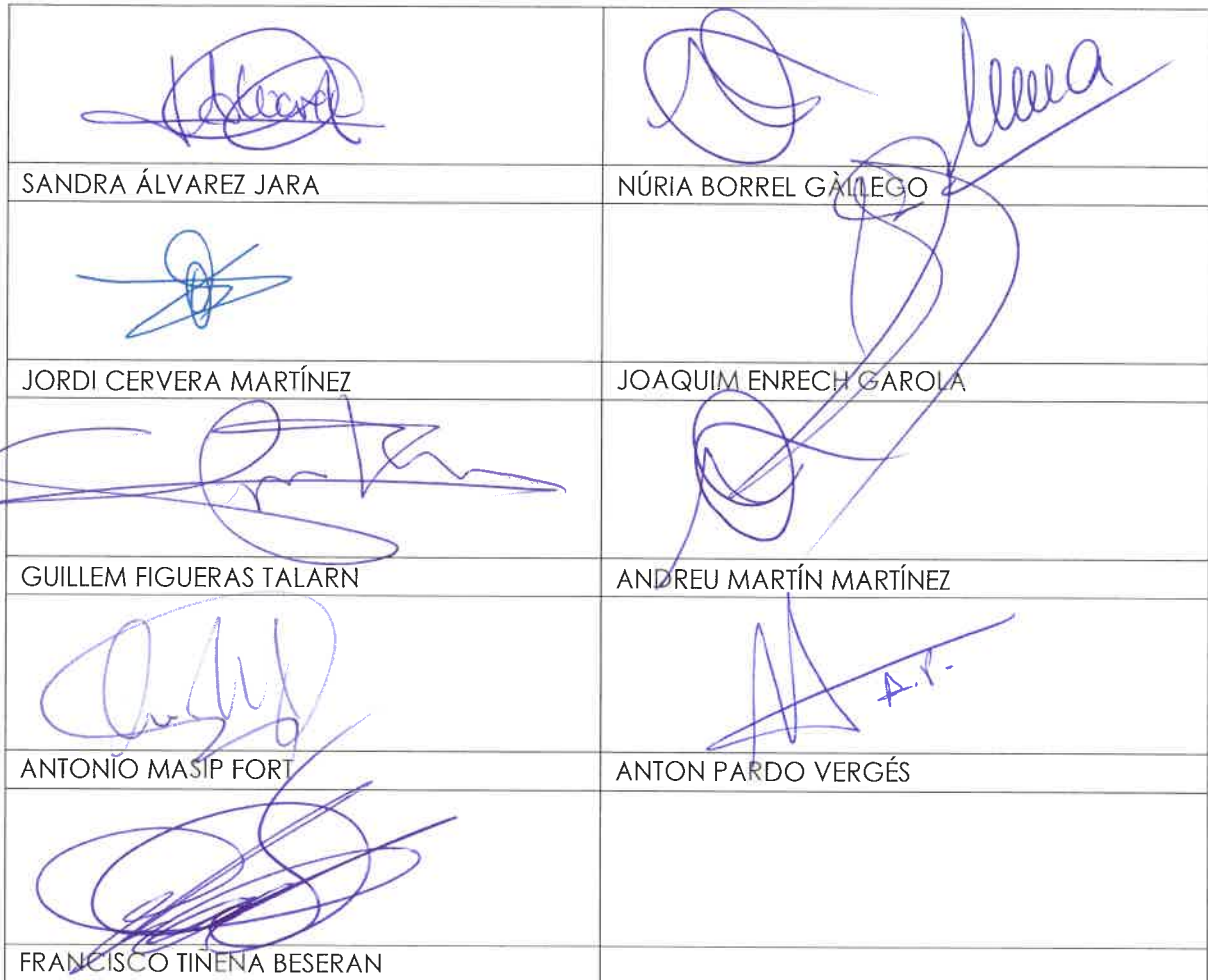 SANDRA ÁLVAREZ JARA
NÚRIA BORREL GÀLLEGO
JORDI CERVERA MARTÍNEZ
JOAQUIM ENRECH GAROLA
GUILLEM FIGUERAS TALARN
ANDREU MARTÍN MARTÍNEZ
A.P.-
ANTONIO MASIP FORT
ANTON PARDO VERGÉS
FRANCISCO TIÑENA BESERAN